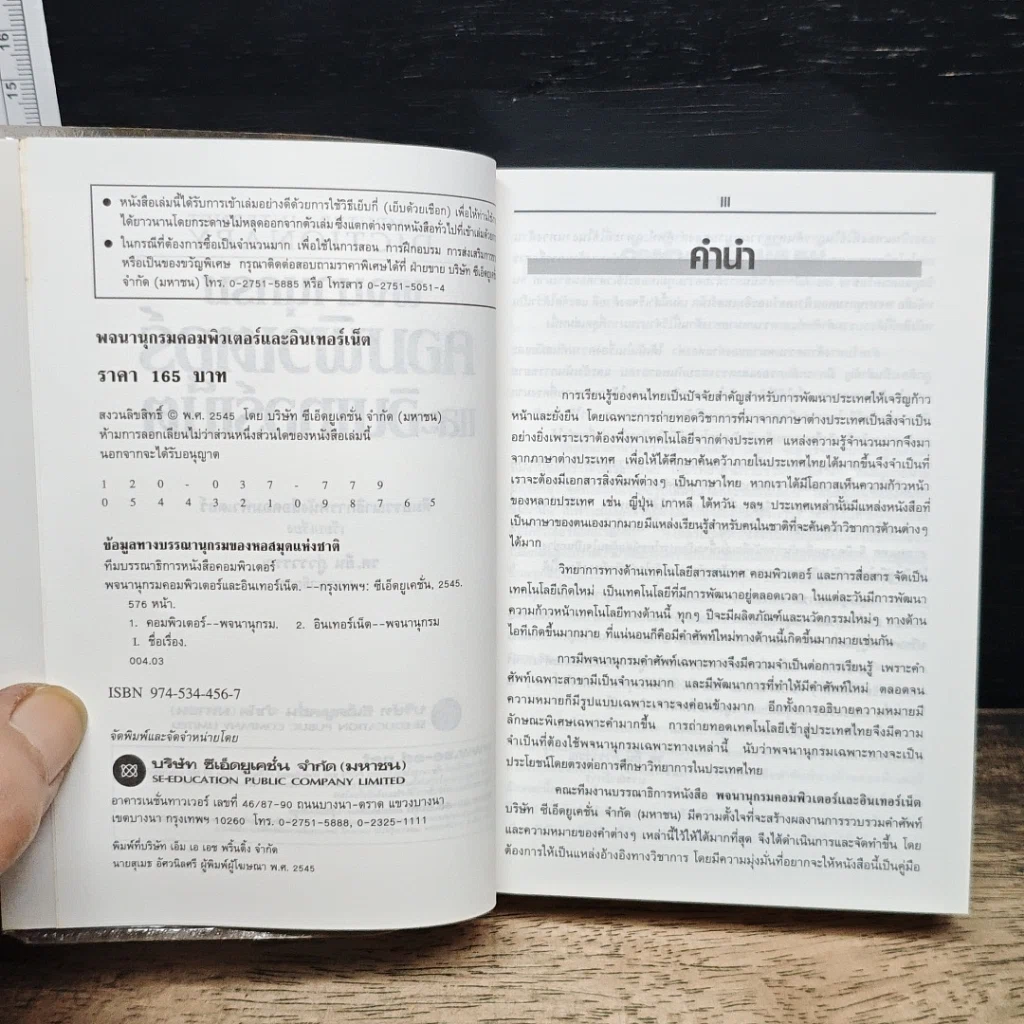 16
15
● หนังสือเล่มนี้ได้รับการเข้าเล่มอย่างดีด้วยการใช้วิธีเย็บกี่ (เย็บด้วยเชือก) เพื่อให้ท่านใช้
ได้ยาวนานโดยกระดาษไม่หลุดออกจากตัวเล่ม ซึ่งแตกต่างจากหนังสือทั่วไปที่เข้าเล่มด้วย
● ในกรณีที่ต้องการซื้อเป็นจำนวนมาก เพื่อใช้ในการสอน การฝึกอบรม การส่งเสริมการ
หรือเป็นของขวัญพิเศษ กรุณาติดต่อสอบถามราคาพิเศษได้ที่ ฝ่ายขาย บริษัท ซีเอ็ดยูเคชั่น
จำกัด (มหาชน) โทร. 0-2751-5885 หรือ โทรสาร 0-2751-5051-4
พจนานุกรมคอมพิวเตอร์และอินเทอร์เน็ต
ราคา 165 บาท
สงวนลิขสิทธิ์ © พ.ศ. 2545 โดย บริษัท ซีเอ็ดยูเคชั่น จำกัด (มหาชน)
ห้ามการลอกเลียนไม่ว่าส่วนหนึ่งส่วนใดของหนังสือเล่มนี้
นอกจากจะได้รับอนุญาต
1 2 0 - 0 3 7 - 7 7 9
0 5 4 4 3 2 1 0 9 8 7 6 5
ข้อมูลทางบรรณานุกรมของหอสมุดแห่งชาติ
ทีมบรรณาธิการหนังสือคอมพิวเตอร์
พจนานุกรมคอมพิวเตอร์และอินเทอร์เน็ต. --กรุงเทพฯ: ซีเอ็ดยูเคชั่น, 2545.
576 หน้า.
1. คอมพิวเตอร์--พจนานุกรม. 2. อินเทอร์เน็ต--พจนานุกรม
I. ชื่อเรื่อง.
004.03
ISBN 974-534-456-7
จัดพิมพ์และจัดจำหน่ายโดย
บริษัท ซีเอ็ดยูเคชั่น จำกัด (มหาชน)
SE-EDUCATION PUBLIC COMPANY LIMITED
อาคารเนชั่นทาวเวอร์ เลขที่ 46/87-90 ถนนบางนา-ตราด แขวงบางนา
เขตบางนา กรุงเทพฯ 10260 โทร. 0-2751-5888, 0-2325-1111
พิมพ์ที่บริษัท เอ็ม เอ เอช พริ้นติ้ง จำกัด
นายสุเมธ อัศวนิลศรี ผู้พิมพ์ผู้โฆษณา พ.ศ. 2545
III
คำนำ
การเรียนรู้ของคนไทยเป็นปัจจัยสำคัญสำหรับการพัฒนาประเทศให้เจริญก้าว
หน้าและยั่งยืน โดยเฉพาะการถ่ายทอดวิชาการที่มาจากภาษาต่างประเทศเป็นสิ่งจำเป็น
อย่างยิ่งเพราะเราต้องพึ่งพาเทคโนโลยีจากต่างประเทศ แหล่งความรู้จำนวนมากจึงมา
จากภาษาต่างประเทศ เพื่อให้ได้ศึกษาค้นคว้าภายในประเทศไทยได้มากขึ้นจึงจำเป็นที่
เราจะต้องมีเอกสารสิ่งพิมพ์ต่างๆ เป็นภาษาไทย หากเราได้มีโอกาสเห็นความก้าวหน้า
ของหลายประเทศ เช่น ญี่ปุ่น เกาหลี ไต้หวัน ฯลฯ ประเทศเหล่านั้นมีแหล่งหนังสือที่
เป็นภาษาของตนเองมากมายมีแหล่งเรียนรู้สำหรับคนในชาติที่จะค้นคว้าวิชาการด้านต่างๆ
ได้มาก
วิทยาการทางด้านเทคโนโลยีสารสนเทศ คอมพิวเตอร์ และการสื่อสาร จัดเป็น
เทคโนโลยีเกิดใหม่ เป็นเทคโนโลยีที่มีการพัฒนาอยู่ตลอดเวลา ในแต่ละวันมีการพัฒนา
ความก้าวหน้าเทคโนโลยีทางด้านนี้ ทุกๆ ปีจะมีผลิตภัณฑ์และนวัตกรรมใหม่ๆ ทางด้าน
ไอทีเกิดขึ้นมากมาย ที่แน่นอนก็คือมีคำศัพท์ใหม่ทางด้านนี้เกิดขึ้นมากมายเช่นกัน
การมีพจนานุกรมคำศัพท์เฉพาะทางจึงมีความจำเป็นต่อการเรียนรู้ เพราะคำ
ศัพท์เฉพาะสาขามีเป็นจำนวนมาก และมีพัฒนาการที่ทำให้มีคำศัพท์ใหม่ ตลอดจน
ความหมายก็มีรูปแบบเฉพาะเจาะจงค่อนข้างมาก อีกทั้งการอธิบายความหมายมี
ลักษณะพิเศษเฉพาะคำมากขึ้น การถ่ายทอดเทคโนโลยีเข้าสู่ประเทศไทยจึงมีความ
จำเป็นที่ต้องใช้พจนานุกรมเฉพาะทางเหล่านี้ นับว่าพจนานุกรมเฉพาะทางจะเป็น
ประโยชน์โดยตรงต่อการศึกษาวิทยาการในประเทศไทย
คณะทีมงานบรรณาธิการหนังสือ พจนานุกรมคอมพิวเตอร์และอินเทอร์เน็ต
บริษัท ซีเอ็ดยูเคชั่น จำกัด (มหาชน) มีความตั้งใจที่จะสร้างผลงานการรวบรวมคำศัพท์
และความหมายของคำต่างๆ เหล่านี้ไว้ให้ได้มากที่สุด จึงได้ดำเนินการและจัดทำขึ้น โดย
ต้องการให้เป็นแหล่งอ้างอิงทางวิชาการ โดยมีความมุ่งมั่นที่อยากจะให้หนังสือนี้เป็นคู่มือ